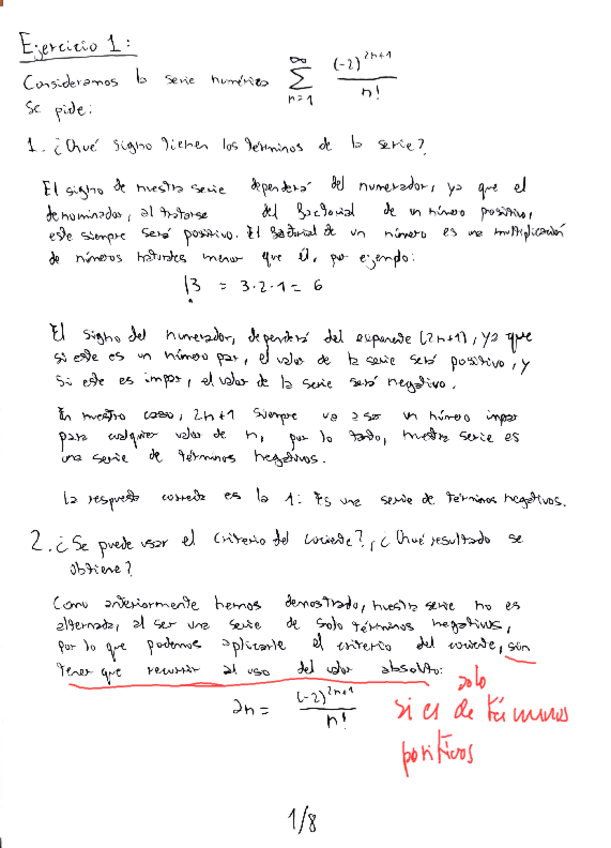 Ejercicio 1:
Consideramos la serie numérica \sum_{n=1}^{\infty} \frac{(-2)^{2n+1}}{n!}
Se pide:
1. ¿Qué signo tienen los términos de la serie?
El signo de nuestra serie dependerá del numerador, ya que el
denominador, al tratarse del factorial de un número positivo,
este siempre será positivo. El factorial de un número es una multiplicación
de números naturales menor que él, por ejemplo:
!3 = 3·2·1 = 6
El signo del numerador, dependerá del exponente (2n+1), ya que
si este es un número par, el valor de la serie será positivo, y
si este es impar, el valor de la serie será negativo.
En nuestro caso, 2n+1 siempre va a ser un número impar
para cualquier valor de n, por lo tanto, nuestra serie es
una serie de términos negativos.
La respuesta correcta es la 1: Es una serie de términos negativos.
2. ¿Se puede usar el criterio del cociente?, ¿Qué resultado se
obtiene?
Como anteriormente hemos demostrado, nuestra serie no es
alternada, al ser una serie de solo términos negativos,
por lo que podemos aplicarle el criterio del cociente, sin
tener que recurrir al uso del valor absoluto:
an = \frac{(-2)^{2n+1}}{n!}
solo
si es de términos
positivos
1/8